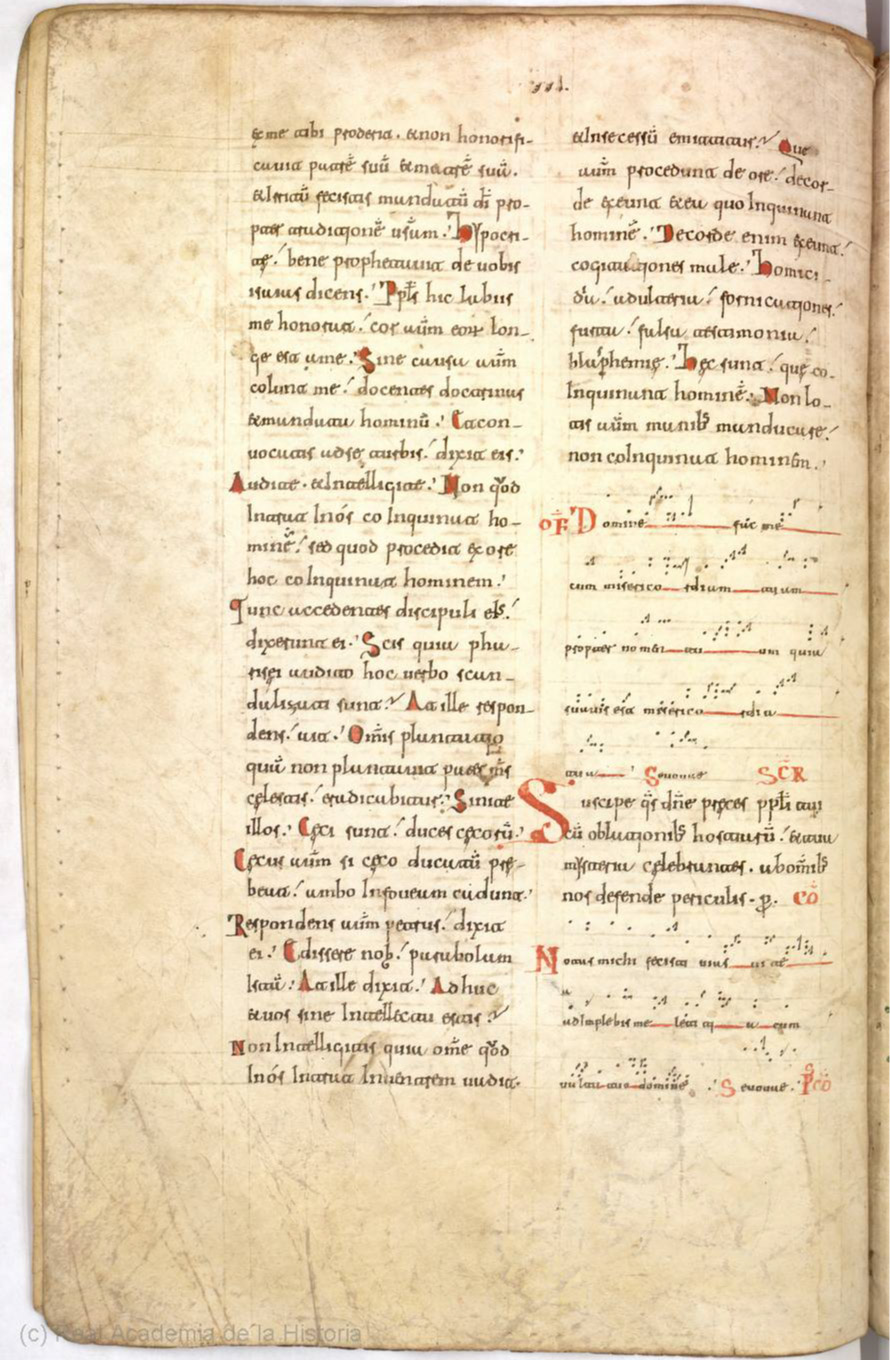 ex me tibi proderit · & non honorifi-
cavit patrē suū & matrē suū.
& irritū fecistis mandatū di pro-
pter traditionē vram. Hypocri-
tę bene prophetavit de vobis
isaias dicens. Ppls hic labiis
me honorat cor aūm eorum lon-
ge est a me. Sine causa aūm
colunt me docentes doctrinas
& mandata hominū. Et con-
vocatis ad se turbis dixit eis.
Audite · & Intelligite. Non qđ
Intrat In ós coInquinat ho-
minē sed quod procedit ex ore
hoc coInquinat hominem.
Tunc accedentes discipuli eis
dixerunt ei. Scis quia pha-
risęi audito hoc verbo scan-
dalizati sunt? At ille respon-
dens ait. Omis plantatio
quā non plantavit pater ms
cęlestis eradicabitur. Sinite
illos. Cęci sunt duces cęcorū.
Cęcus aūm si cęco ducatū prę-
beat ambo In foveam cadunt.
Respondens aūm petrus dixit
ei. Edissere nob parabolam
Istā. At ille dixit. Adhuc
& vos sine Intellectu estis?
Non Intelligitis quia ome qđ
In ós Intrat In ventrem vadit.
& In secessū emittitur? Que
aūm procedunt de ore de cor-
de exeunt & ea quo Inquinant
hominē. De corde enim exeunt
cogitationes male. Homici-
dia adulteria fornicationes
furta falsa testimonia
blasphemię. Hęc sunt quę co-
Inquinant hominē. Non lo-
tis aūm manib; manducare
non coInquinat hominem.
OF Domine fac me
cum misericordiam tuam
propter nomen tuum quia
suavis est misericordia
tua Sevovae SCR
Suscipe qs dne pręces ppli tui
cū oblationib; hostiarū & tua
mysteria cęlebrantes · ab omib;
nos defende periculis · p. CŌ
Notas michi fecisti vias vitae
adImplebis me letitia cum
vultu tuo domine Sevovae. PCŌ
(c) Real Academia de la Historia